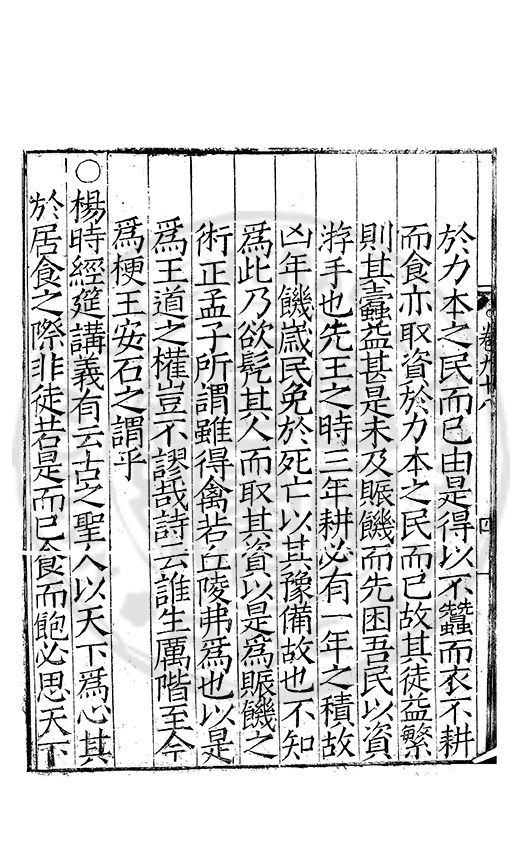 於力本之民而已由是得以不蠶而衣不耕
而食亦取資於力本之民而已故其徒益繁
則其蠹益甚是未及賑饑而先困吾民以資
游手也先王之時三年耕必有一年之積故
凶年饑嵗民免於死亡以其豫備故也不知
爲此乃欲髠其人而取其資以是爲賑饑之
術正孟子所謂雖得禽若丘陵弗爲也以是
爲王道之權豈不謬哉詩云誰生厲階至今
爲梗王安石之謂乎
○楊時經筵講義有云古之聖人以天下爲心其
於居食之際非徒若是而已食而飽必思天下